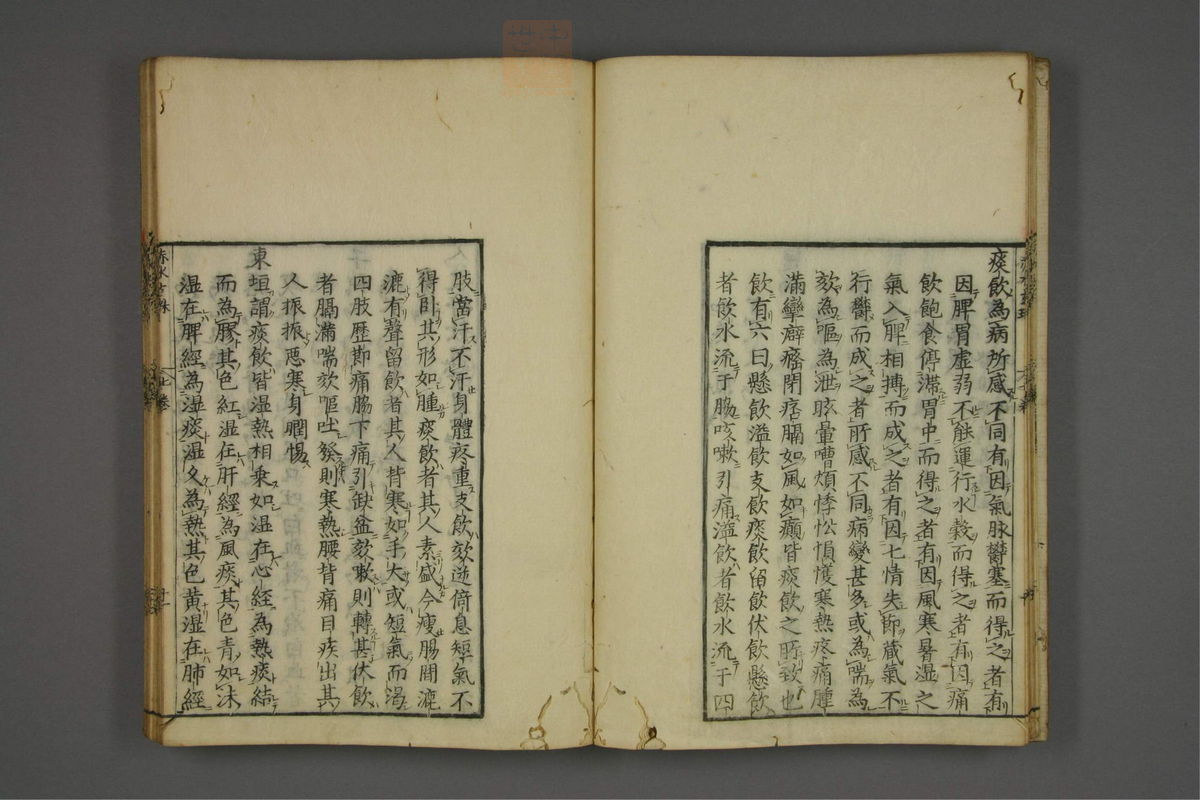 痰飲為病所感不同有因氣脉鬱塞而得之者有
因脾胃虚弱不能運行水穀而得之者有因痛
飲飽食停滞胃中而得之者有因風寒暑湿之
氣入脾相搏而成之者有因七情失節蔵氣不
行鬱而成之者所感不同病變甚多或為喘為
欬為嘔為泄眩暈嘈煩悸忪惧愯寒熱疼痛腫
滿攣癖癃閉痞膈如風如癲皆痰飲之所致也
飲有六曰懸飲溢飲支飲痰飲留飲伏飲懸飲
者飲水流于脇咳嗽引痛溢飲者飲水流于四
肢當汗不汗身體疼重支飲欬逆倚息短氣不
得卧其形如腫痰飲者其人素盛今瘦腸間漉
漉有聲留飲者其人背寒如手大或短氣而渇
四肢歴節痛脇下痛引缺盆欬嗽則轉甚伏飲
者膈滿喘欬嘔吐發則寒熱腰背痛目疾出其
人振振悪寒身瞤惕
東垣謂痰飲皆湿熱相乗如湿在心經為熱痰結
而為膠其色紅湿在肝經為風痰其色青如沫
湿在脾經為湿痰湿久為熱其色黄湿在肺經